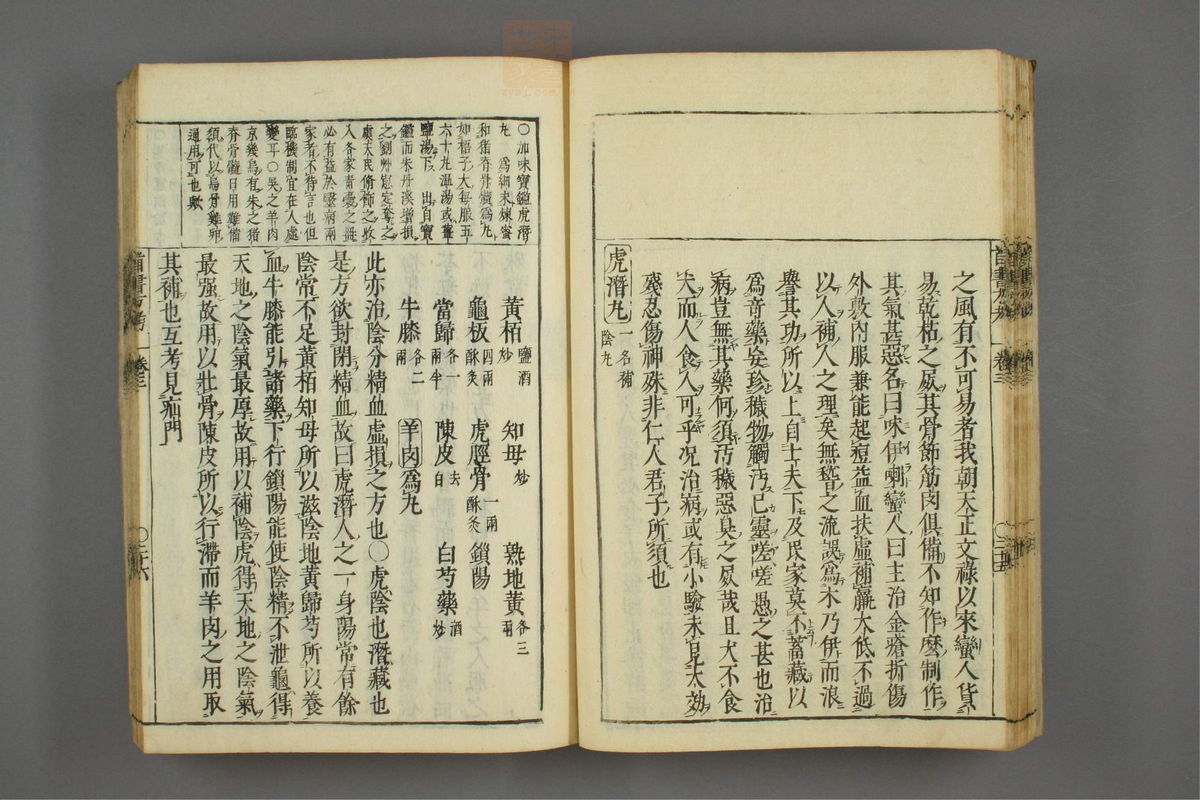 之風有不可易者我朝天正文祿以來蠻人貨
易乾枯之屍其骨節筋肉俱備不知作麼制作
其氣甚惡名曰味伊喇蠻人曰主治金瘡折傷
外敷內服兼能起痘益血扶虛補羸大低不過
以人補人之理矣無稽之流誤爲木乃伊而浪
譽其功所以上自士夫下及民家莫不蓄藏以
爲奇藥妄珍穢物觸汚已靈嗟嗟愚之甚也治
病豈無其藥何須汚穢惡臭之屍哉且犬不食
犬而人食人可乎況治病或有小驗未見大効
殘忍傷神殊非仁人君子所須也
虎潛丸 一名補陰丸
○加味寶鑑虎潛
丸 爲細末煉蜜
和猪脊丹髓爲丸
如梧子大每服五
六十丸溫湯或薑
鹽湯下 出自寶
鑑而朱丹溪增損
之劉
虞天民脩飾之收
入各家青囊之
必有益於醫病兩
家者不待言也但
臨機制宜在人處
變耳○吳之羊肉
京幾烏有朱之猪
脊骨髓日用難備
須代以烏骨雞卵
通用可也歟
黃栢 鹽酒炒 知母 炒 熟地黃 各三兩
龜板 四兩酥炙 虎脛骨 一兩酥炙 鎖陽
當歸 各一兩半 陳皮 去白 白芍藥 酒炒
牛膝 各二兩 羊肉爲丸
此亦治陰分精血虛損之方也○虎陰也潛藏也
是方欲封閉精血故曰虎潛人之一身陽常有餘
陰常不足黃栢知母所以滋陰地黃歸芍所以養
血牛膝能引諸藥下行鎖陽能使陰精不泄龜得
天地之陰氣最厚故用以補陰虎得天地之陰氣
最强故用以壯骨陳皮所以行滯而羊肉之用取
其補也互考見疝門
首書方考 卷三 〇二十六